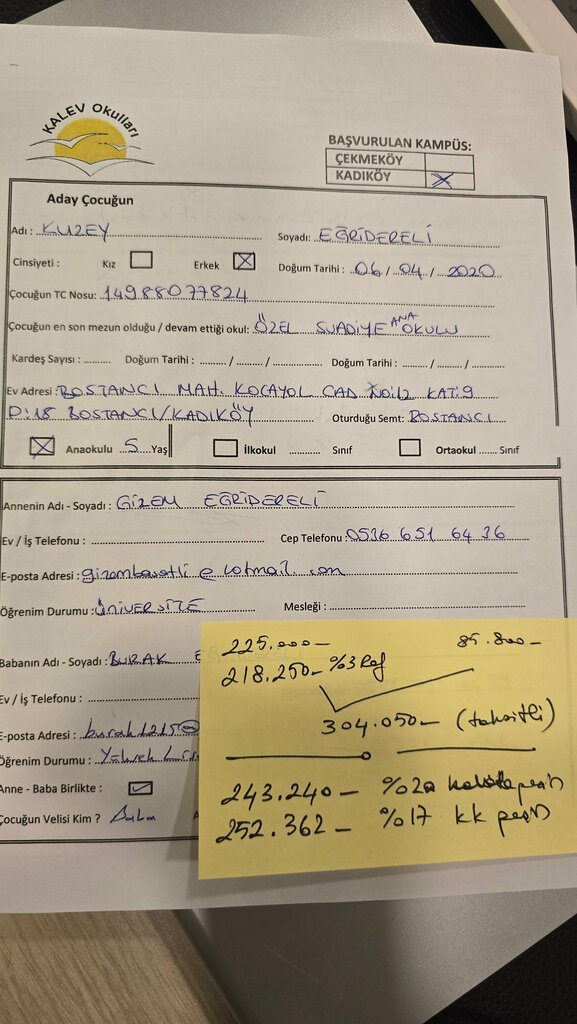 KALEV Okulları
BAŞVURULAN KAMPÜS:
ÇEKMEKÖY
KADIKÖY X
Aday Çocuğun
Adı : KUZEY Soyadı: EĞRİDERELİ
Cinsiyeti : Kız Erkek X Doğum Tarihi : 06 / 04 / 2020
Çocuğun TC Nosu: 14988077824
Çocuğun en son mezun olduğu / devam ettiği okul: ÖZEL SUADİYE ANA OKULU
Kardeş Sayısı : .......... Doğum Tarihi : ........ / ....... / ........ Doğum Tarihi : ........ / ....... / ........
Ev Adresi : BOSTANCI MAH. KOCAYOL CAD NO:12 KAT:9
D:18 BOSTANCI/KADIKÖY Oturduğu Semt: BOSTANCI
X Anaokulu 5 Yaş İlkokul ............ Sınıf Ortaokul ...... Sınıf
Annenin Adı - Soyadı : GİZEM EĞRİDERELİ
Ev / İş Telefonu : Cep Telefonu : 0536 651 64 36
E-posta Adresi : @
Öğrenim Durumu : ÜNİVERSİTE Mesleği :
Babanın Adı - Soyadı : BURAK
Ev / İş Telefonu :
E-posta Adresi : burak1215@
Öğrenim Durumu :
Anne - Baba Birlikte : ✓
Çocuğun Velisi Kim ? Baba
225.000- 85.800-
218.250- %3 Ref
304.050- (taksitli)
243.240- %20 peşin
252.362- %17 kk peşin